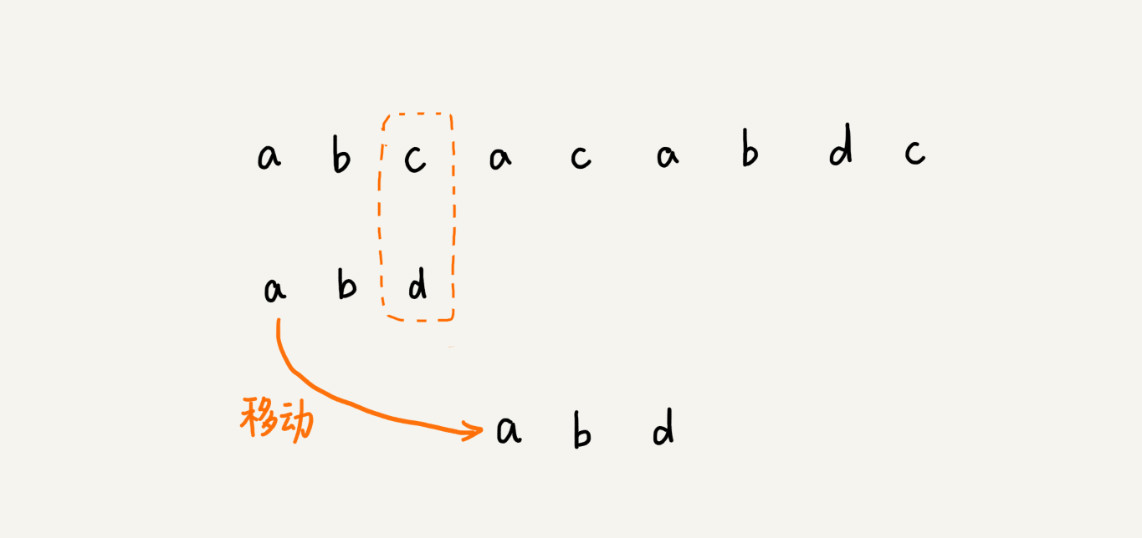 a b c a c a b d c
a b d
移动
a b d